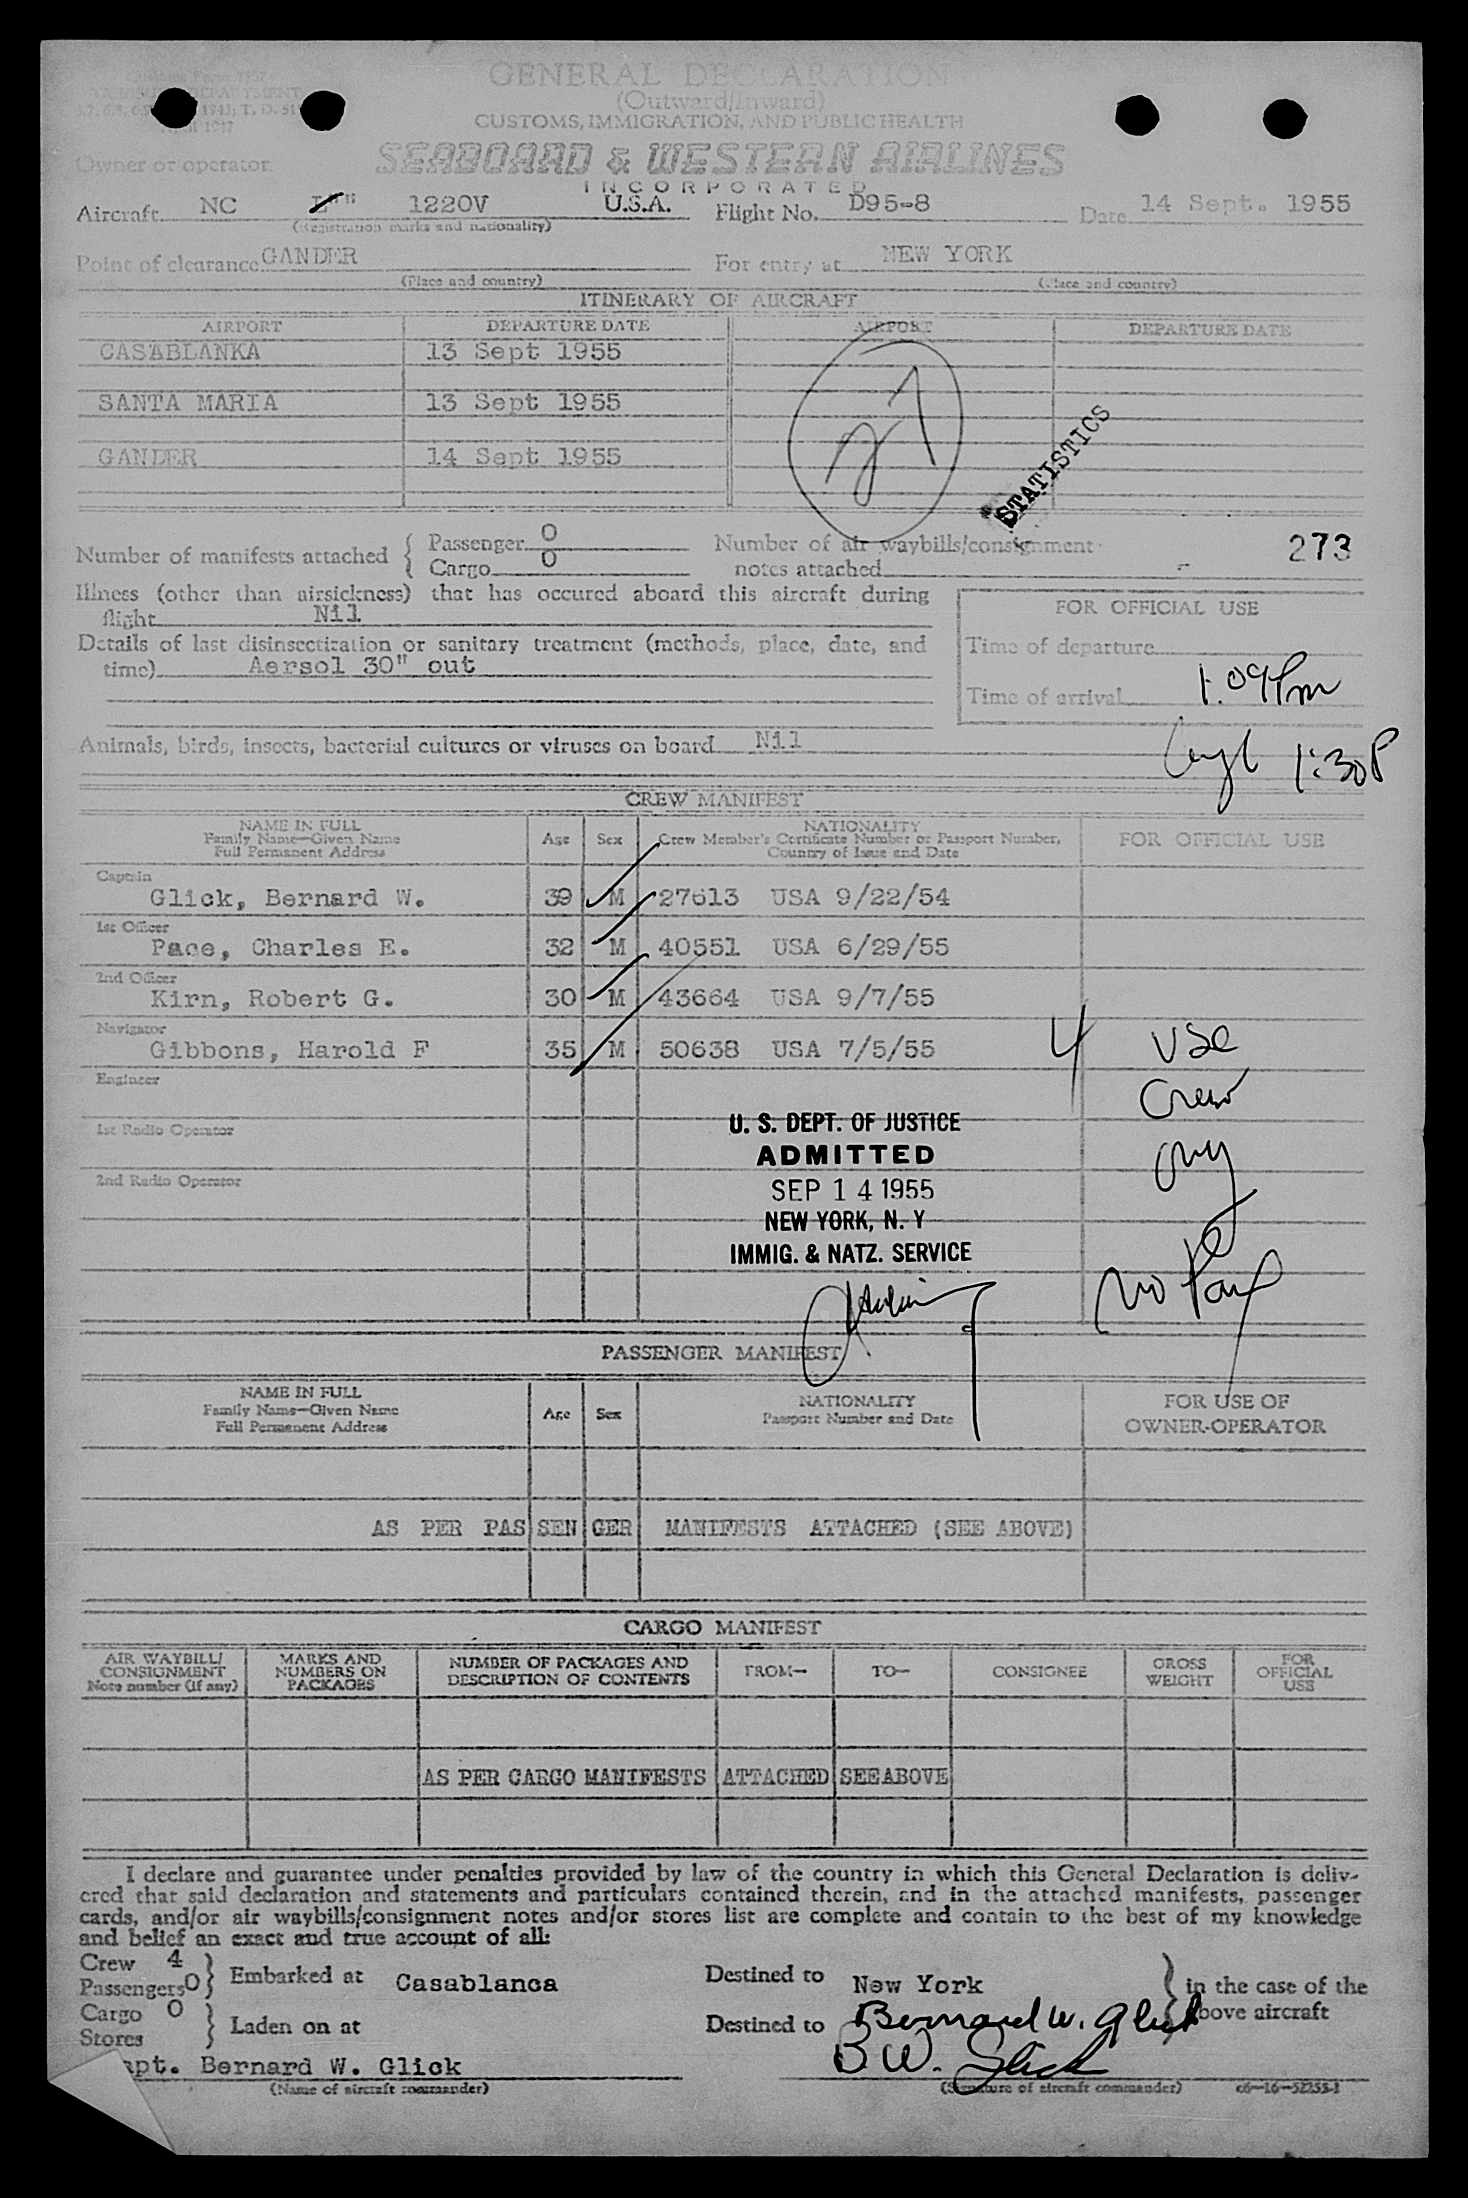 GENERAL DECLARATION
(Outward/Inward)
CUSTOMS, IMMIGRATION, AND PUBLIC HEALTH
Owner or operator
SEABOARD & WESTERN AIRLINES
INCORPORATED
Aircraft NC 1220V U.S.A. Flight No. D95-8 Date 14 Sept. 1955
(Registration marks and nationality)
Point of clearance GANDER For entry at NEW YORK
(Place and country) (Place and country)
ITINERARY OF AIRCRAFT
AIRPORT DEPARTURE DATE AIRPORT DEPARTURE DATE
CASABLANKA 13 Sept 1955
SANTA MARIA 13 Sept 1955
GANDER 14 Sept 1955
27
STATISTICS
Number of manifests attached { Passenger 0 Number of air waybills/consignment
Cargo 0 notes attached
273
Illness (other than airsickness) that has occured aboard this aircraft during
flight Nil
FOR OFFICIAL USE
Details of last disinsectization or sanitary treatment (methods, place, date, and
time) Aersol 30" out
Time of departure
Time of arrival 1:09 Pm
1:30P
Animals, birds, insects, bacterial cultures or viruses on board Nil
CREW MANIFEST
NAME IN FULL Age Sex NATIONALITY FOR OFFICIAL USE
Family Name—Given Name Crew Member's Certificate Number or Passport Number,
Full Permanent Address Country of Issue and Date
Captain
Glick, Bernard W. 39 M 27613 USA 9/22/54
1st Officer
Pace, Charles E. 32 M 40551 USA 6/29/55
2nd Officer
Kirn, Robert G. 30 M 43664 USA 9/7/55
Navigator
Gibbons, Harold F 35 M 50638 USA 7/5/55
4 USC
Engineer
Crew
1st Radio Operator
only
2nd Radio Operator
U. S. DEPT. OF JUSTICE
ADMITTED
SEP 14 1955
NEW YORK, N. Y
IMMIG. & NATZ. SERVICE
no Pax
PASSENGER MANIFEST
NAME IN FULL Age Sex NATIONALITY FOR USE OF
Family Name—Given Name Passport Number and Date OWNER-OPERATOR
Full Permanent Address
AS PER PAS SEN GER MANIFESTS ATTACHED (SEE ABOVE)
CARGO MANIFEST
AIR WAYBILL/ CONSIGNMENT Note number (if any) MARKS AND NUMBERS ON PACKAGES NUMBER OF PACKAGES AND DESCRIPTION OF CONTENTS FROM— TO— CONSIGNEE GROSS WEIGHT FOR OFFICIAL USE
AS PER CARGO MANIFESTS ATTACHED SEE ABOVE
I declare and guarantee under penalties provided by law of the country in which this General Declaration is deliv-
ered that said declaration and statements and particulars contained therein, and in the attached manifests, passenger
cards, and/or air waybills/consignment notes and/or stores list are complete and contain to the best of my knowledge
and belief an exact and true account of all:
Crew 4
Passengers 0 } Embarked at Casablanca Destined to New York } in the case of the
above aircraft
Cargo 0
Stores } Laden on at Destined to
Bernard W. Glick
B W. Glick
Capt. Bernard W. Glick
(Name of aircraft commander) (Signature of aircraft commander) c6—16—52255-1